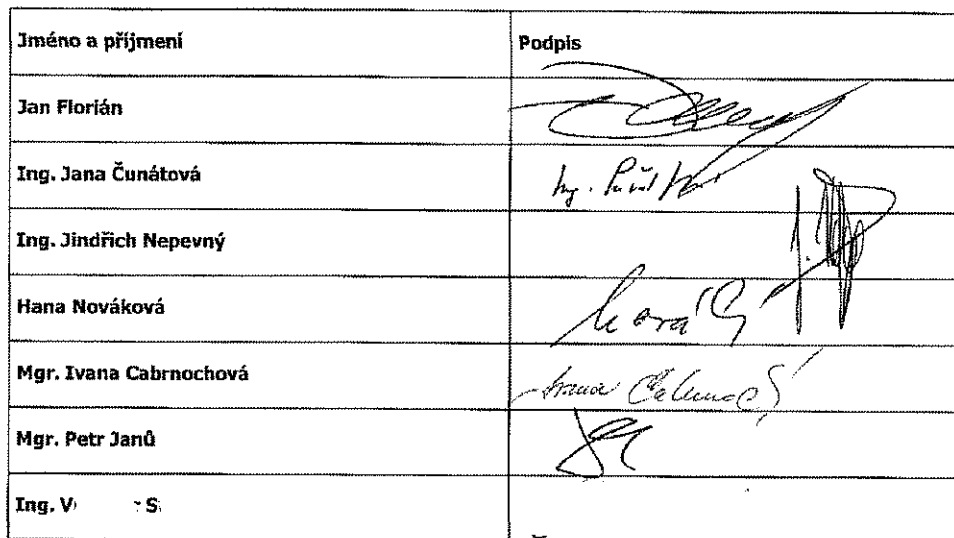 Jméno a příjmení Podpis
Jan Florián
Ing. Jana Čunátová Ing.
Ing. Jindřich Nepevný
Hana Nováková
Mgr. Ivana Cabrnochová Ivana
Mgr. Petr Janů
Ing. V S